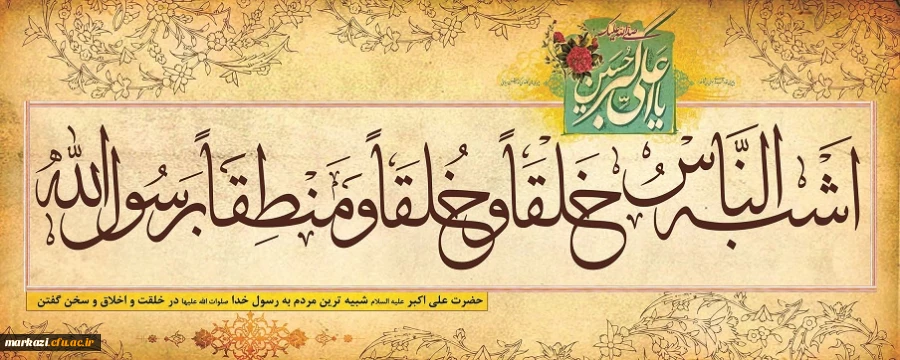 یا علی اکبر حسین
اَشبَه النَّاسُ خَلقَاً و خُلقَاً و مَنطِقَاً بِرَسُولِ الله
حضرت علی اکبر علیه السلام شبیه ترین مردم به رسول خدا صلوات الله علیها در خلقت و اخلاق و سخن گفتن
markazi.cfu.ac.ir